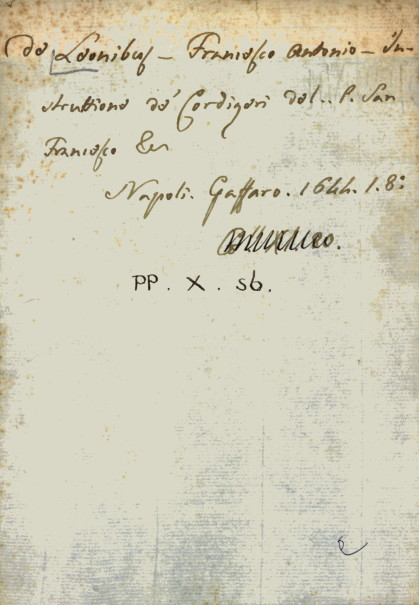 De Leonibus - Francesco Antonio - In-
struttione de' Cordigeri del.. P. San
Francesco &c
Napoli. Gaffaro. 1644. 1. 8:
PP. X. sb.